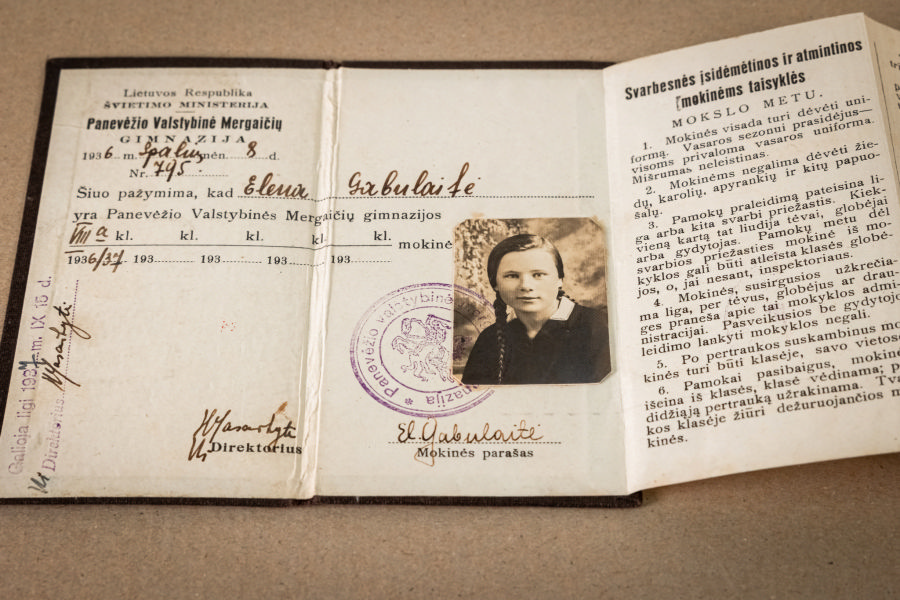 Lietuvos Respublika
ŠVIETIMO MINISTERIJA
Panevėžio Valstybinė Mergaičių
GIMNAZIJA
1936 m. Spalių mėn. 8 d.
Nr. 795.
Šiuo pažymima, kad Elena Gabulaitė
yra Panevėžio Valstybinės Mergaičių gimnazijos
VIII a kl. kl. kl. kl. kl. mokinė
1936/37 193 193 193 193
Galioja ligi 1937 m. IX 15 d.
Direktorius
Direktorius
Panevėžio valstybinė
gimnazija
El. Gabulaitė
Mokinės parašas
Svarbesnės įsidėmėtinos ir atmintinos
mokinėms taisyklės
MOKSLO METU.
1. Mokinės visada turi dėvėti uni-
formą. Vasaros sezonui prasidėjus—
visoms privaloma vasaros uniforma.
Mišrumas neleistinas.
2. Mokinėms negalima dėvėti žie-
dų, karolių, apyrankių ir kitų papuo-
šalų.
3. Pamokų praleidimą pateisina li-
ga arba kita svarbi priežastis. Kiek-
vieną kartą tat liudija tėvai, globėjai
arba gydytojas. Pamokų metu dėl
svarbios priežasties mokinė iš mo-
kyklos gali būti atleista klasės globė-
jos, o, jai nesant, inspektoriaus.
4. Mokinės, susirgusios užkrečia-
ma liga, per tėvus, globėjus ar drau-
ges praneša apie tai mokyklos admi-
nistracijai. Pasveikusios be gydytojo
leidimo lankyti mokyklos negali.
5. Po pertraukos suskambinus mo-
kinės turi būti klasėje, savo vietose
6. Pamokai pasibaigus, mokinė
išeina iš klasės, klasė vėdinama; p
didžiąją pertrauką užrakinama. Tva
kos klasėje žiūri dežuruojančios m
kinės.